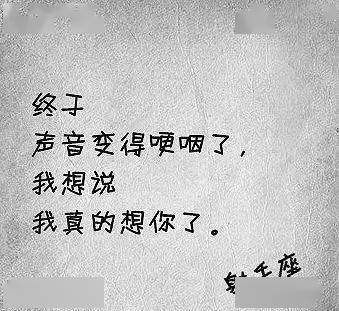 终于
声音变得哽咽了，
我想说
我真的想你了。
座